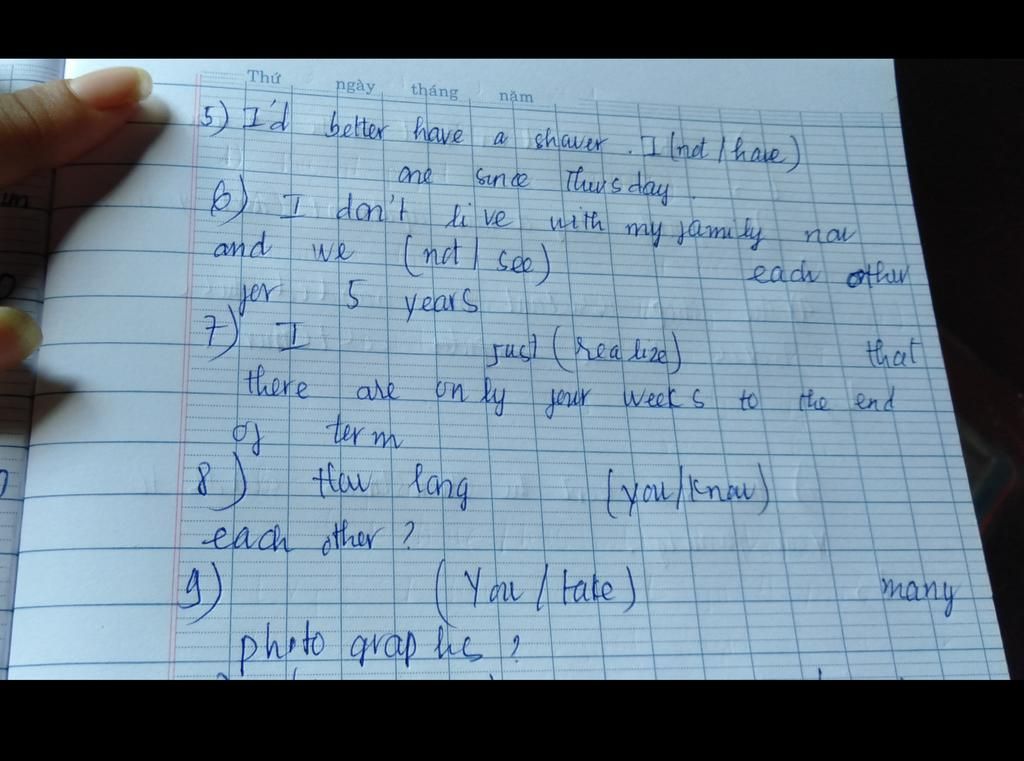 Thứ ngày tháng năm
5) I'd better have a shawer. I (not / have)
one since Thursday
6) I don't live with my family now
and we (not / see) each other
for 5 years
7) I just (realize) that
there are only four weeks to the end
of term
8) How long (you/know)
each other?
9) (You / take) many
photographs?